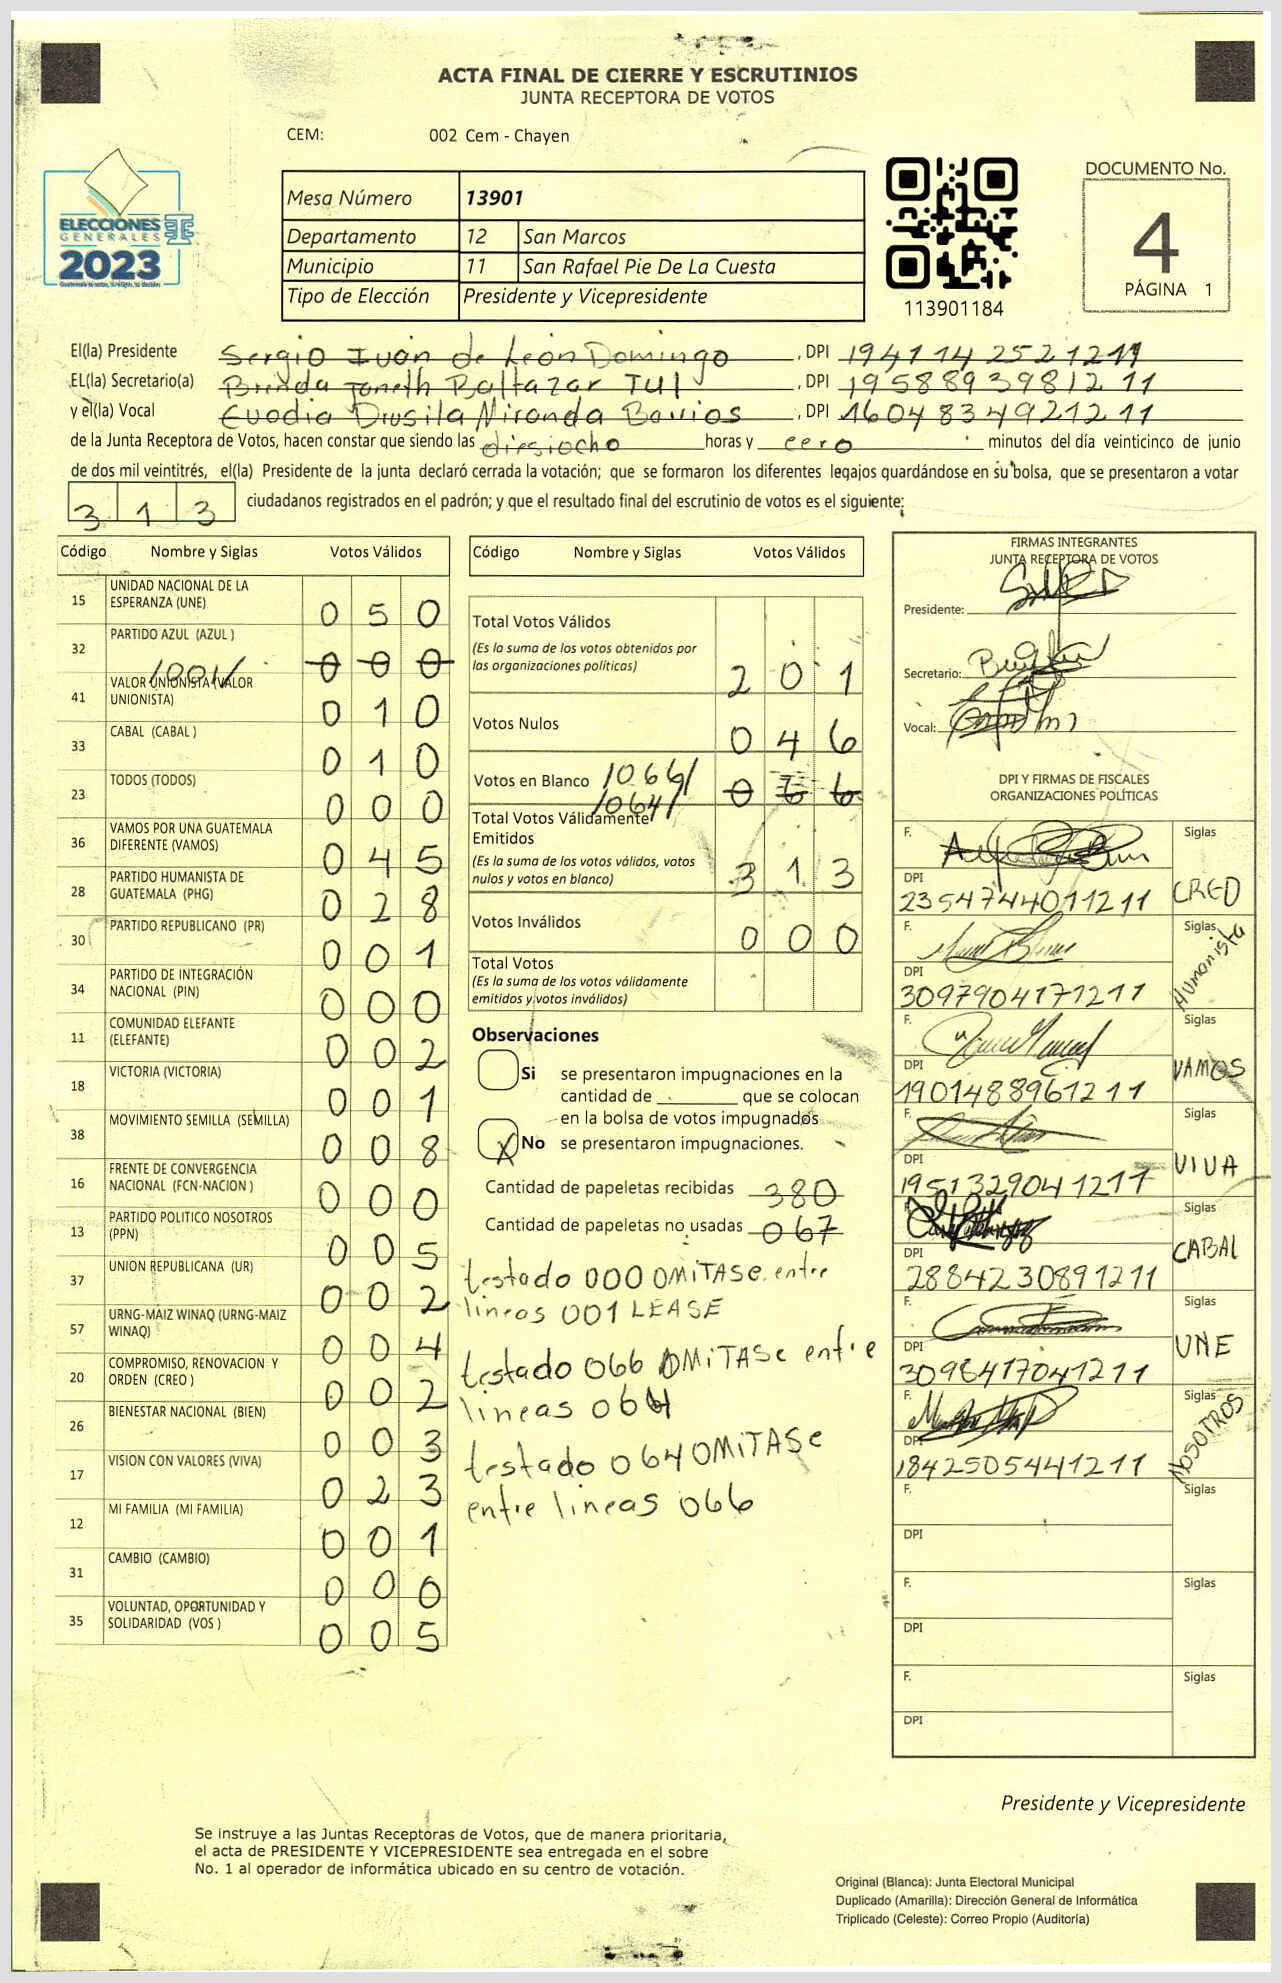 ACTA FINAL DE CIERRE Y ESCRUTINIOS
JUNTA RECEPTORA DE VOTOS
CEM: 002 Cem - Chayen
ELECCIONES
GENERALES
2023
Mesa Número 13901
Departamento 12 San Marcos
Municipio 11 San Rafael Pie De La Cuesta
Tipo de Elección Presidente y Vicepresidente
113901184
DOCUMENTO No.
4
PÁGINA 1
El(la) Presidente Sergio Iván de León Domingo, DPI
EL(la) Secretario(a) Brenda Janeth Baltazar Tul, DPI 1958893981211
y el(la) Vocal Euodia Drusila Miranda Barrios, DPI 1604834921211
de la Junta Receptora de Votos, hacen constar que siendo las diesiocho horas y cero minutos del día veinticinco de junio
de dos mil veintitrés, el(la) Presidente de la junta declaró cerrada la votación; que se formaron los diferentes legajos guardándose en su bolsa, que se presentaron a votar
313 ciudadanos registrados en el padrón; y que el resultado final del escrutinio de votos es el siguiente:
Código Nombre y Siglas Votos Válidos
15 UNIDAD NACIONAL DE LA ESPERANZA (UNE) 050
32 PARTIDO AZUL (AZUL ) 000
/001/
41 VALOR UNIONISTA (VALOR UNIONISTA) 010
33 CABAL (CABAL ) 010
23 TODOS (TODOS) 000
36 VAMOS POR UNA GUATEMALA DIFERENTE (VAMOS) 045
28 PARTIDO HUMANISTA DE GUATEMALA (PHG) 028
30 PARTIDO REPUBLICANO (PR) 001
34 PARTIDO DE INTEGRACIÓN NACIONAL (PIN) 000
11 COMUNIDAD ELEFANTE (ELEFANTE) 002
18 VICTORIA (VICTORIA) 001
38 MOVIMIENTO SEMILLA (SEMILLA) 008
16 FRENTE DE CONVERGENCIA NACIONAL (FCN-NACION ) 000
13 PARTIDO POLITICO NOSOTROS (PPN) 005
37 UNION REPUBLICANA (UR) 002
57 URNG-MAIZ WINAQ (URNG-MAIZ WINAQ) 004
20 COMPROMISO, RENOVACION Y ORDEN (CREO ) 002
26 BIENESTAR NACIONAL (BIEN) 003
17 VISION CON VALORES (VIVA) 023
12 MI FAMILIA (MI FAMILIA) 001
31 CAMBIO (CAMBIO) 000
35 VOLUNTAD, OPORTUNIDAD Y SOLIDARIDAD (VOS ) 005
Código Nombre y Siglas Votos Válidos
Total Votos Válidos 201
(Es la suma de los votos obtenidos por
las organizaciones políticas)
Votos Nulos 046
Votos en Blanco /066/ 066
/064/
Total Votos Válidamente
Emitidos 313
(Es la suma de los votos válidos, votos
nulos y votos en blanco)
Votos Inválidos 000
Total Votos
(Es la suma de los votos válidamente
emitidos y votos inválidos)
Observaciones
Si se presentaron impugnaciones en la
cantidad de ________ que se colocan
en la bolsa de votos impugnados
X No se presentaron impugnaciones.
Cantidad de papeletas recibidas 380
Cantidad de papeletas no usadas 067
testado 000 OMITASE entre
lineas 001 LEASE
testado 066 OMITASE entre
lineas 064
testado 064 OMITASE
entre lineas 066
FIRMAS INTEGRANTES
JUNTA RECEPTORA DE VOTOS
Presidente:
Secretario:
Vocal:
DPI Y FIRMAS DE FISCALES
ORGANIZACIONES POLÍTICAS
F. Siglas
DPI 2354744011211 CREO
F. Siglas
DPI 3097904171211 Humanista
F. Siglas
DPI 1901488961211 VAMOS
F. Siglas
DPI 1951329041211 VIVA
F. Siglas
DPI 2884230891211 CABAL
F. Siglas
DPI 3098417041211 UNE
F. Siglas
DPI 1842505441211 NOSOTROS
F. Siglas
DPI
F. Siglas
DPI
F. Siglas
DPI
Presidente y Vicepresidente
Se instruye a las Juntas Receptoras de Votos, que de manera prioritaria,
el acta de PRESIDENTE Y VICEPRESIDENTE sea entregada en el sobre
No. 1 al operador de informática ubicado en su centro de votación.
Original (Blanca): Junta Electoral Municipal
Duplicado (Amarilla): Dirección General de Informática
Triplicado (Celeste): Correo Propio (Auditoría)